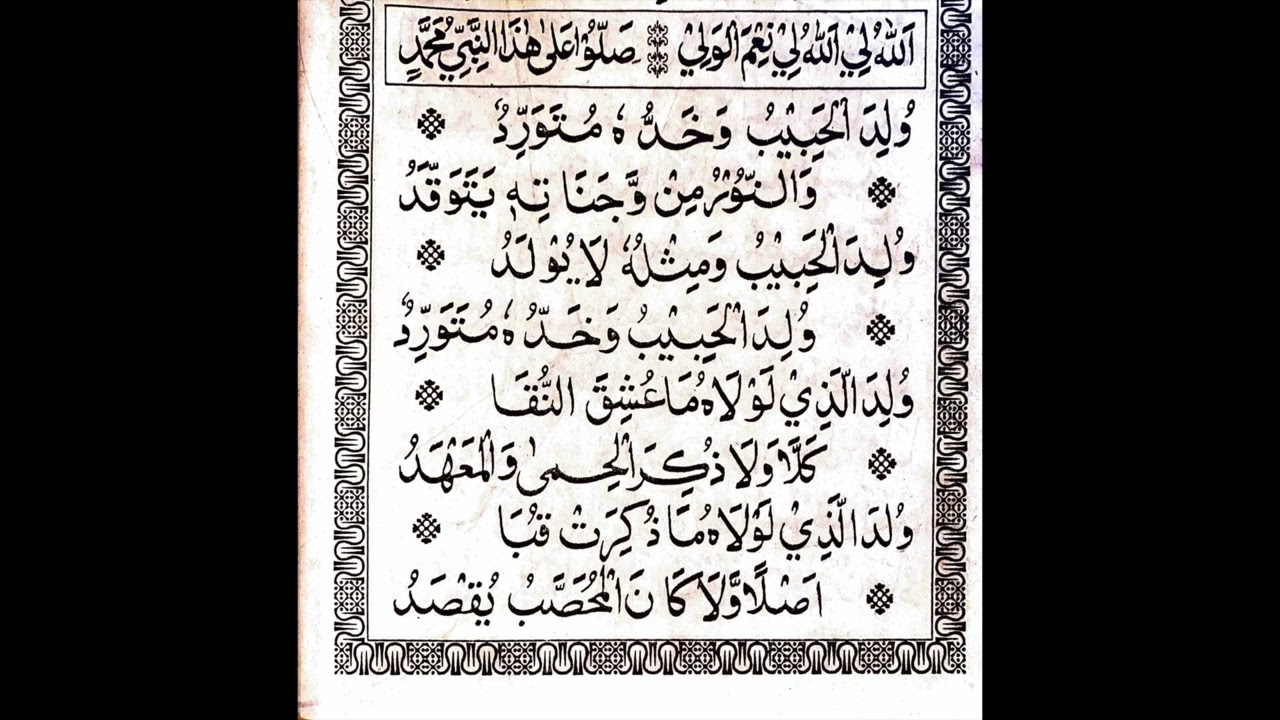 اَللّٰهُ لِيْ اَللّٰهُ لِيْ نِعْمَ الْوَلِيْ صَلُّوْا عَلٰى هٰذَا النَّبِيِّ مُحَمَّدٍ
وُلِدَ الْحَبِيْبُ وَخَدُّهٗ مُتَوَرِّدُ
وَالنُّوْرُ مِنْ وَّجَنَاتِهٖ يَتَوَقَّدُ
وُلِدَ الْحَبِيْبُ وَمِثْلُهٗ لَا يُوْلَدُ
وُلِدَ الْحَبِيْبُ وَخَدُّهٗ مُتَوَرِّدُ
وُلِدَ الَّذِيْ لَوْلَاهُ مَا عُشِقَ النُّقَا
كَلَّا وَلَا ذُكِرَ الْحِمٰى وَالْمَعْهَدُ
وُلِدَ الَّذِيْ لَوْلَاهُ مَا ذُكِرَتْ قُبَا
اَصْلًا وَّلَا كَانَ الْمُحَصَّبُ يُقْصَدُ